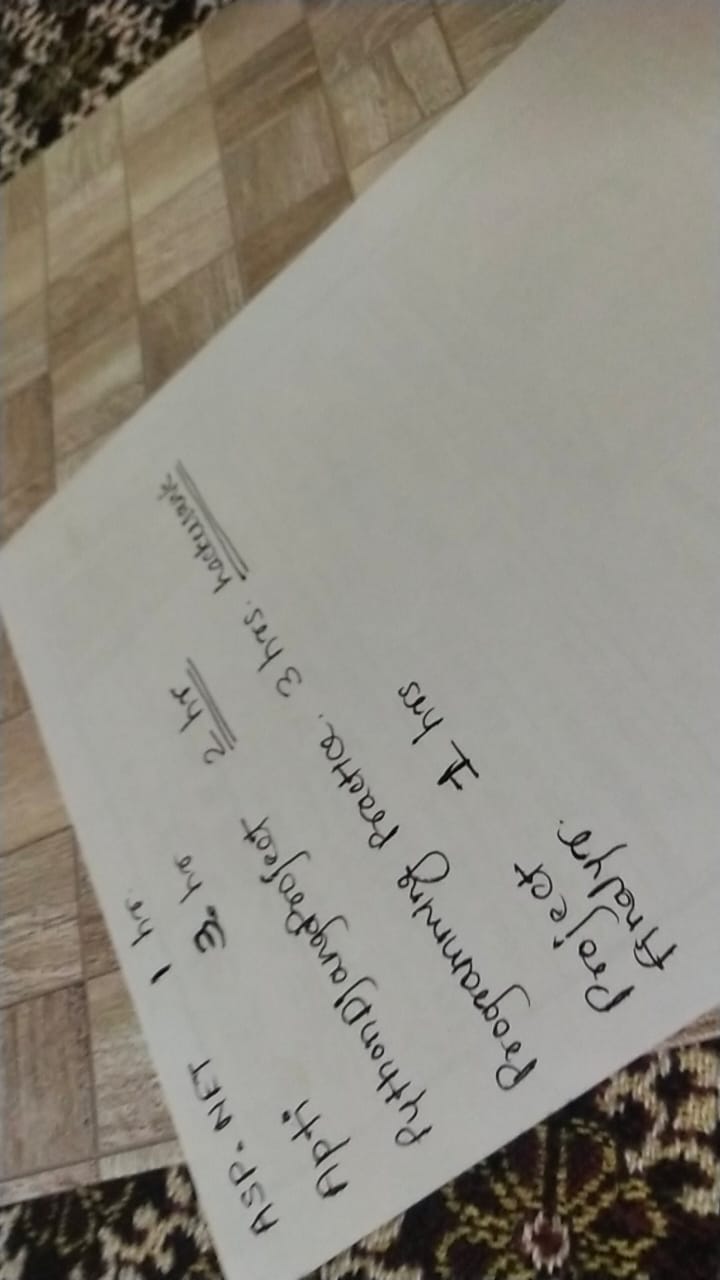 ASP.NET 1 hr.
Apti 3 hr
PythonDjangoProject 2 hr
Programming Practice. 3 hrs. hackerrank
Project 1 hrs
Analyr.